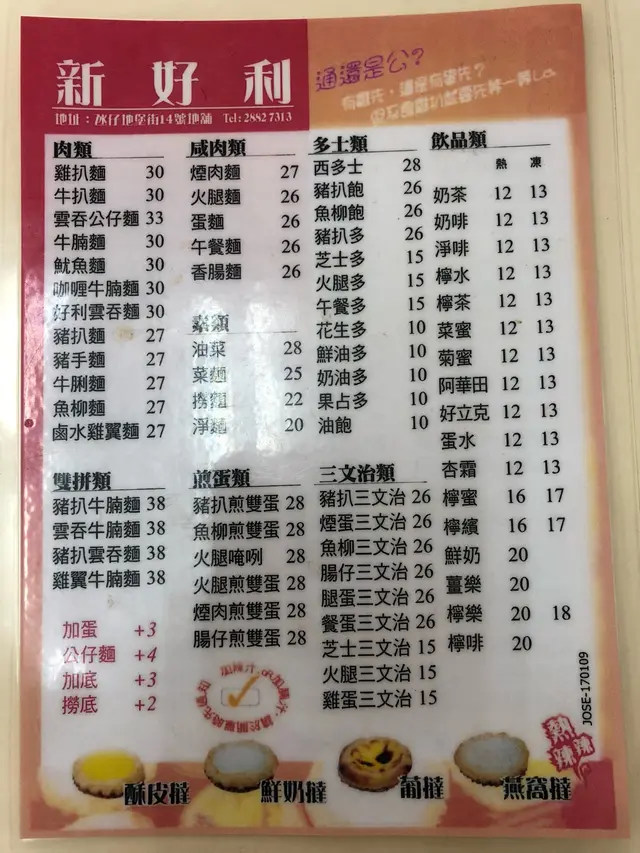 新好利
地址：氹仔地堡街14號地舖 Tel: 2882 7313
肉類
雞扒麵 30
牛扒麵 30
雲吞公仔麵 33
牛腩麵 30
魷魚麵 30
咖喱牛腩麵 30
好利雲吞麵 30
豬扒麵 27
豬手麵 27
牛脷麵 27
魚柳麵 27
鹵水雞翼麵 27
雙拼類
豬扒牛腩麵 38
雲吞牛腩麵 38
豬扒雲吞麵 38
雞翼牛腩麵 38
加蛋 +3
公仔麵 +4
加底 +3
撈底 +2
咸肉類
煙肉麵 27
火腿麵 26
蛋麵 26
午餐麵 26
香腸麵 26
素類
油菜 28
菜麵 25
撈麵 22
淨麵 20
煎蛋類
豬扒煎雙蛋 28
魚柳煎雙蛋 28
火腿唵咧 28
火腿煎雙蛋 28
煙肉煎雙蛋 28
腸仔煎雙蛋 28
多士類
西多士 28
豬扒飽 26
魚柳飽 26
豬扒多 26
芝士多 15
火腿多 15
午餐多 15
花生多 10
鮮油多 10
奶油多 10
果占多 10
油飽 10
三文治類
豬扒三文治 26
煙蛋三文治 26
魚柳三文治 26
腸仔三文治 26
腿蛋三文治 26
餐蛋三文治 26
芝士三文治 15
火腿三文治 15
雞蛋三文治 15
飲品類
熱 凍
奶茶 12 13
奶啡 12 13
淨啡 12 13
檸水 12 13
檸茶 12 13
菜蜜 12 13
菊蜜 12 13
阿華田 12 13
好立克 12 13
蛋水 12 13
杏霜 12 13
檸蜜 16 17
檸繽 16 17
鮮奶 20
薑樂 20
檸樂 20 18
檸啡 20
JOSE-170109
熱辣辣
酥皮撻
鮮奶撻
葡撻
燕窩撻